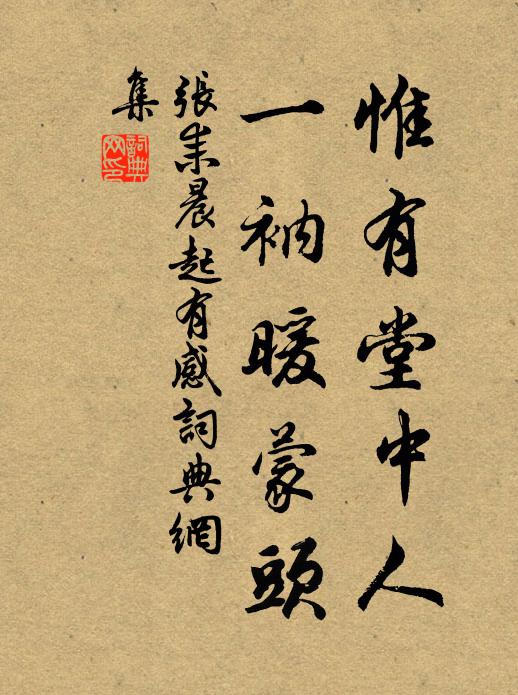 惟有堂中人
一衲暖蒙頭
張耒晨起有感詞典網
集
詞典
網印